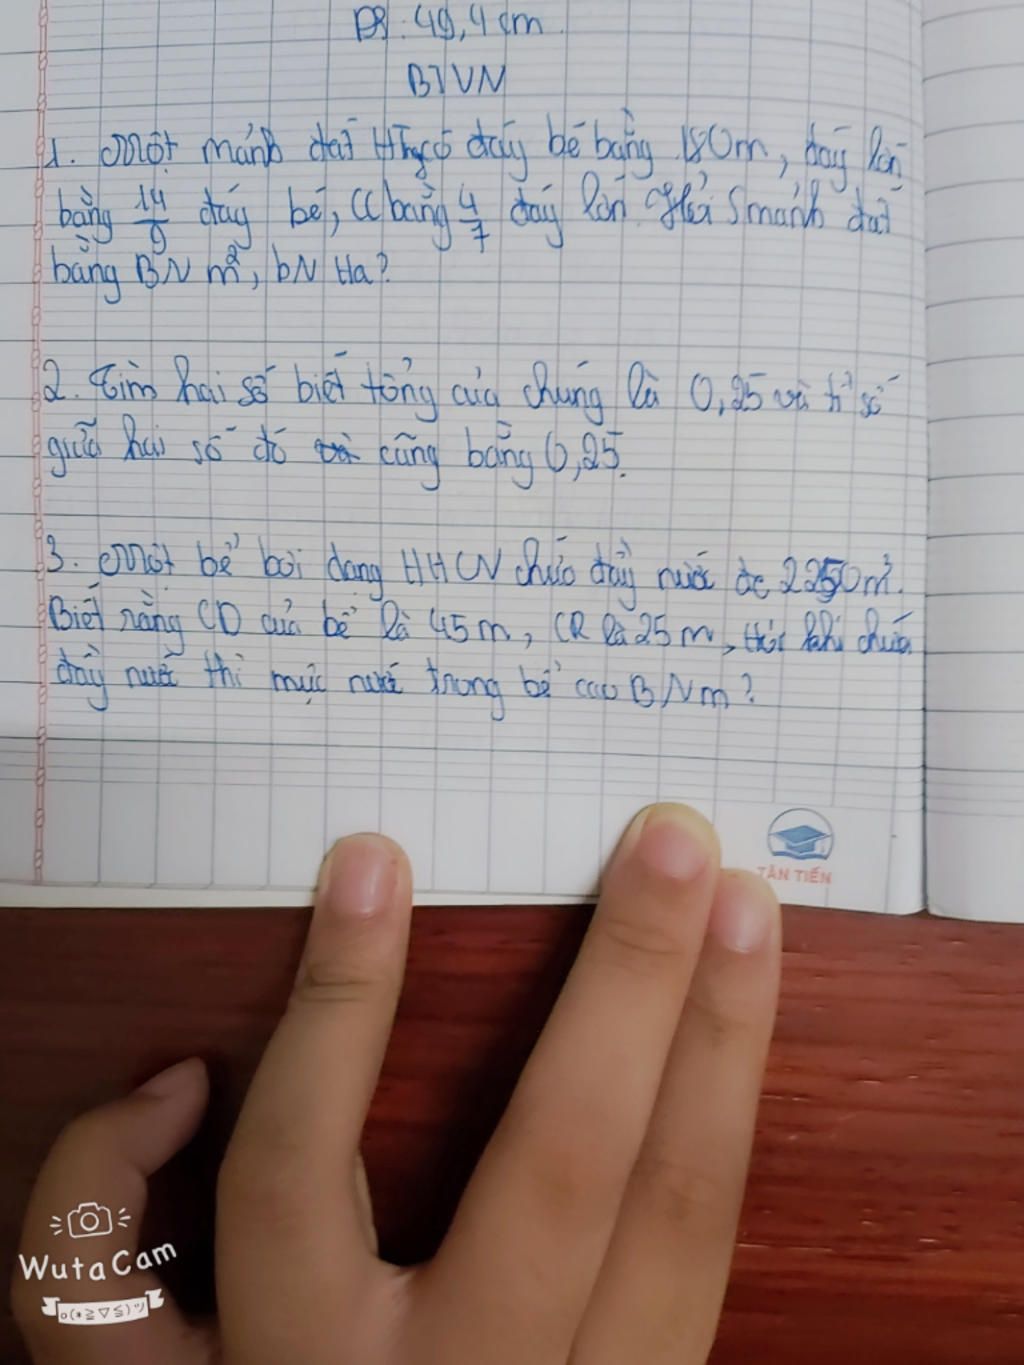 ĐS: 49,4 cm.
BTVN
1. Một mảnh đất HThg có đáy bé bằng 180m, đáy lớn
bằng 14/9 đáy bé, CC bằng 4/7 đáy lớn. Hỏi S mảnh đất
bằng BN m², BN Ha?
2. Tìm hai số biết tổng của chúng là 0,25 và tỉ số
giữa hai số đó cũng bằng 0,25.
3. Một bể bơi dạng HHCN chứa đầy nước đc 2250m³.
Biết rằng CD của bể là 45m, CR là 25m, Hỏi khi chứa
đầy nước thì mực nước trong bể cao BNm?
TÂN TIẾN
WutaCam
o(*≧▽≦)ツ